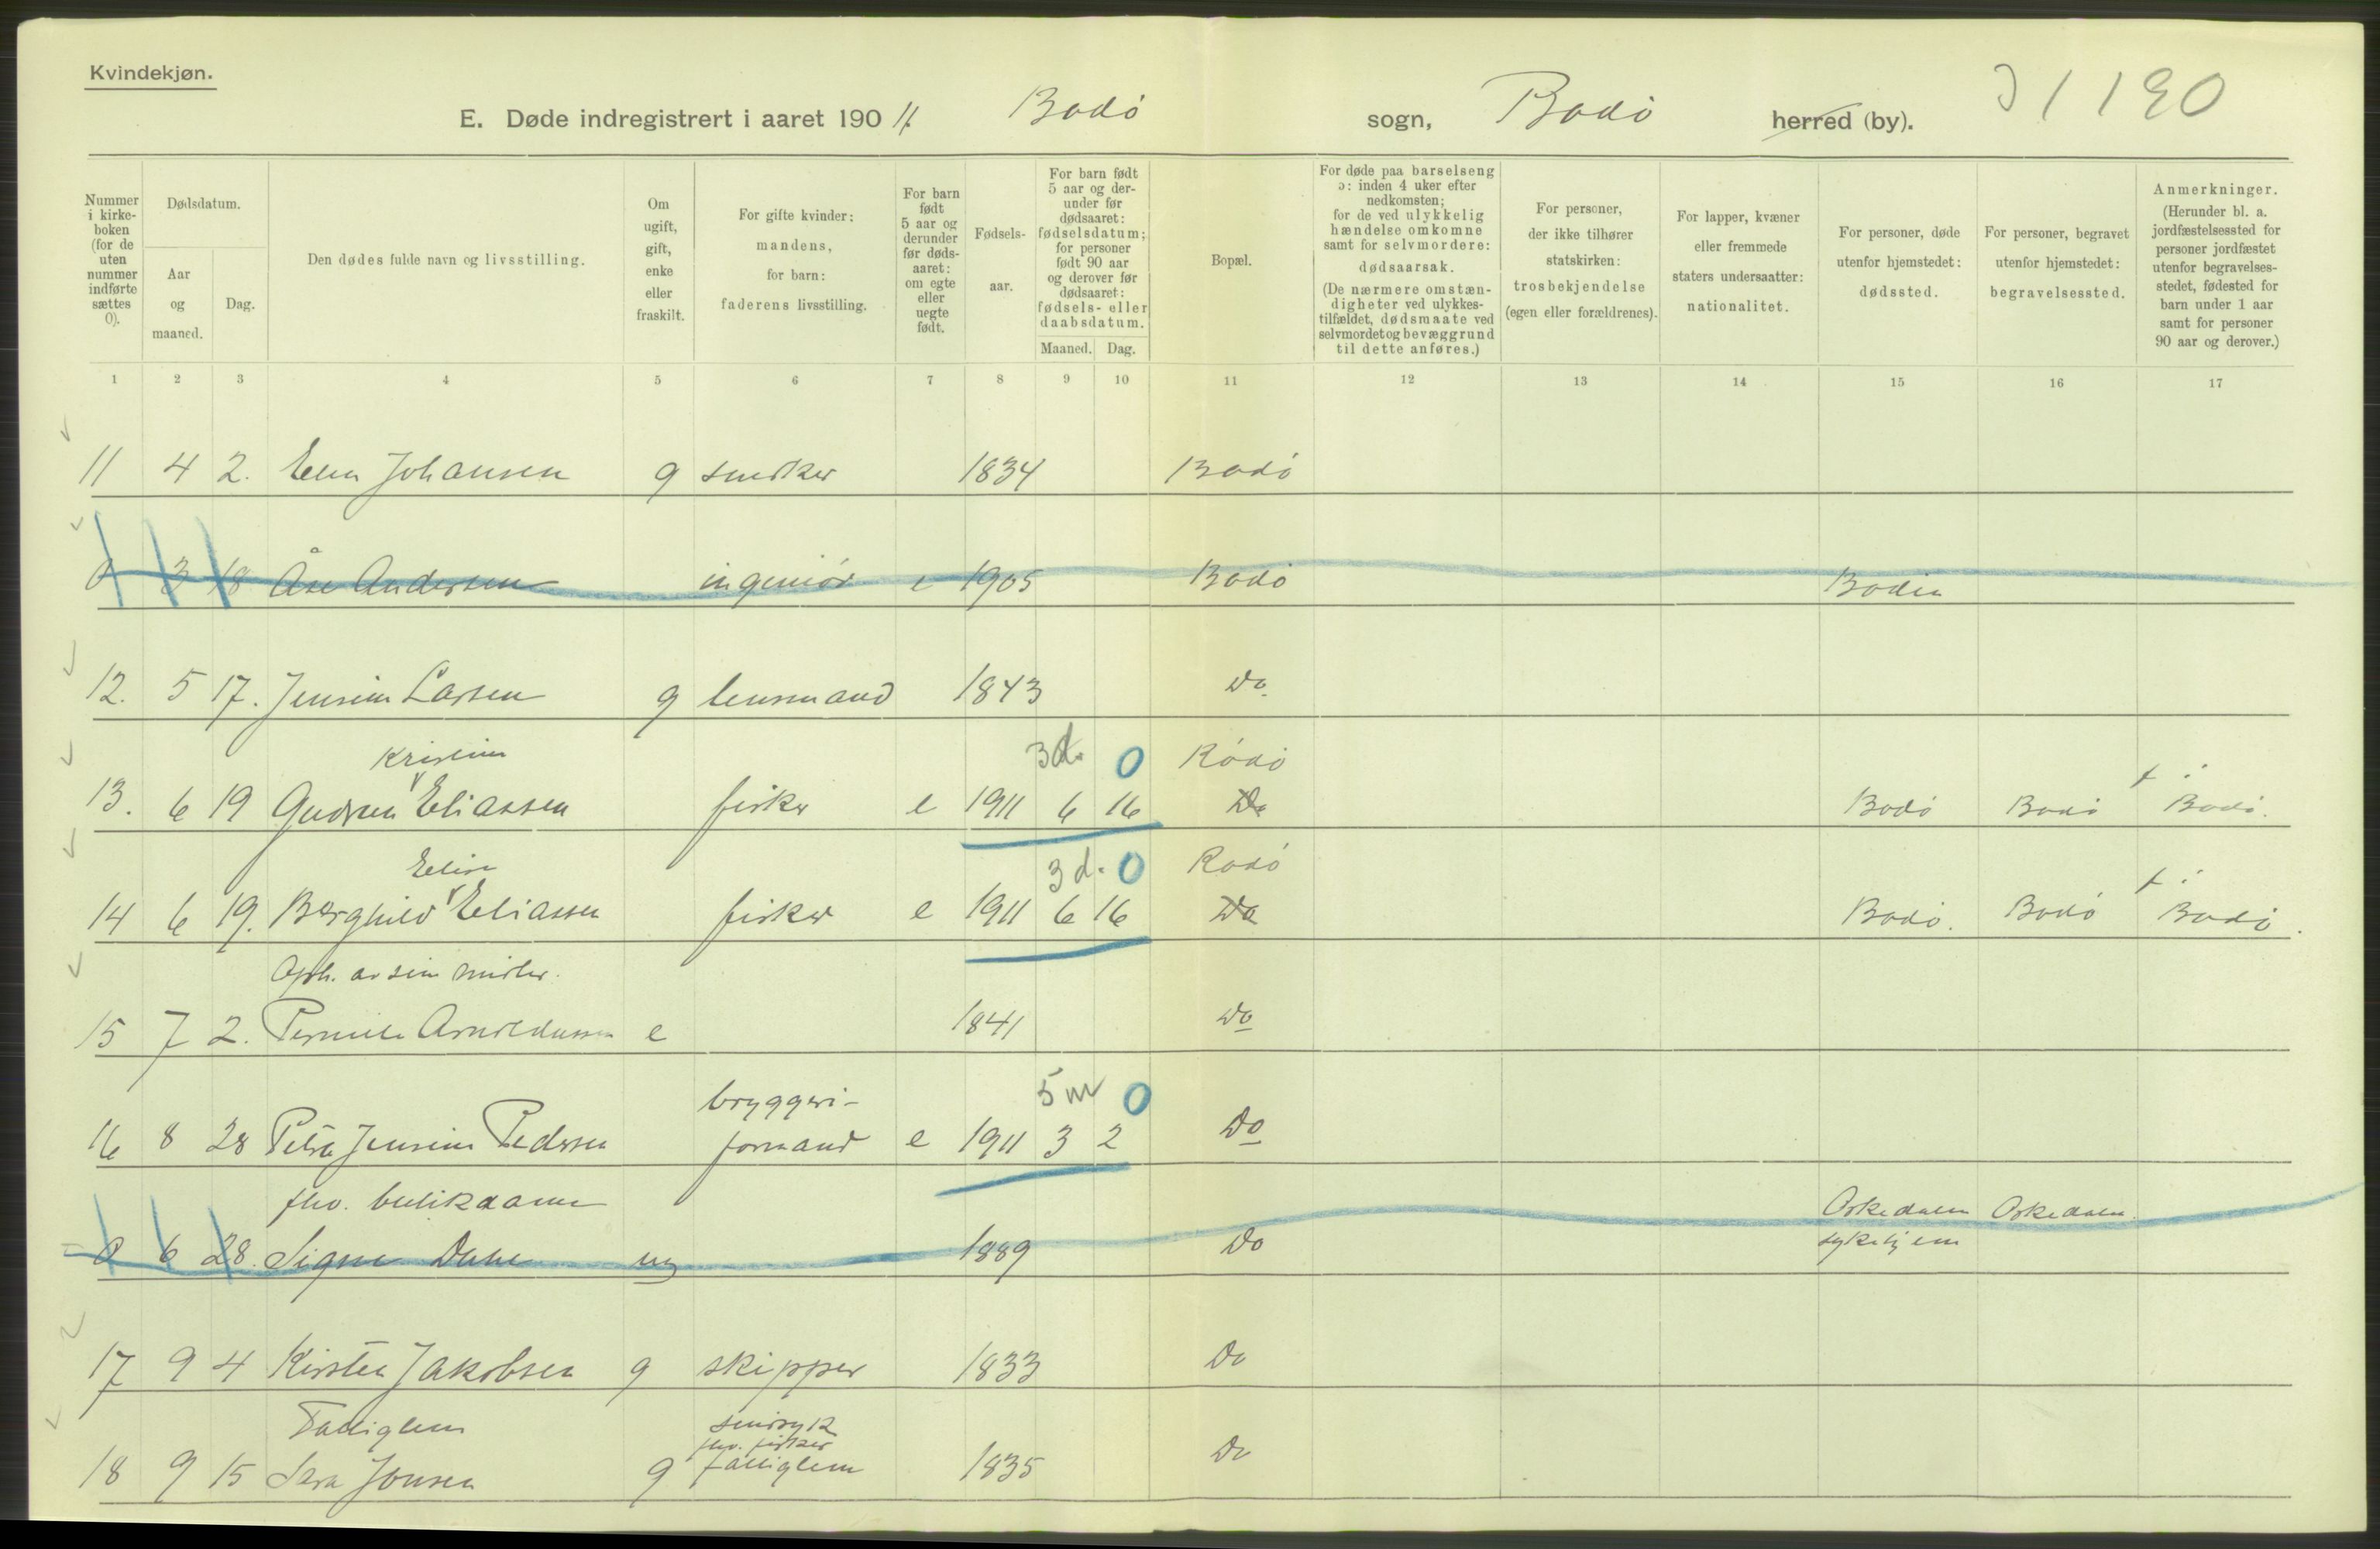 Kvindekjøn.
E. Døde indregistrert i aaret 1911. Bodø sogn, Bodø herred (by). 1190
Nummer i kirkeboken (for de uten nummer indførte sættes 0).
Dødsdatum.
Aar og maaned.
Dag.
Den dødes fulde navn og livsstilling.
Om ugift, gift, enke eller fraskilt.
For gifte kvinder: mandens, for barn: faderens livsstilling.
For barn født 5 aar og derunder før dødsaaret: om egte eller uegte født.
Fødselsaar.
For barn født 5 aar og derunder før dødsaaret: fødselsdatum; for personer født 90 aar og derover før dødsaaret: fødsels- eller daabsdatum.
Maaned. Dag.
Bopæl.
For døde paa barselseng ɔ: inden 4 uker efter nedkomsten; for de ved ulykkelig hændelse omkomne samt for selvmordere: dødsaarsak. (De nærmere omstændigheter ved ulykkestilfældet, dødsmaate ved selvmordet og bevæggrund til dette anføres.)
For personer, der ikke tilhører statskirken: trosbekjendelse (egen eller forældrenes).
For lapper, kvæner eller fremmede staters undersaatter: nationalitet.
For personer, døde utenfor hjemstedet: dødssted.
For personer, begravet utenfor hjemstedet: begravelsessted.
Anmerkninger. (Herunder bl. a. jordfæstelsessted for personer jordfæstet utenfor begravelsesstedet, fødested for barn under 1 aar samt for personer 90 aar og derover.)
1 2 3 4 5 6 7 8 9 10 11 12 13 14 15 16 17
11 4 2. Elen Johansen g snedker 1834 Bodø
0 3 18 Åse Andersen ingeniør e 1905 Bodø Bodin
12. 5 17. Jensine Larsen g lensmand 1843 Do
Kristine 3d. 0 Rødø
13. 6 19 Gudrun Eliassen fisker e 1911 6 16 Do Bodø Bodø Bodø.
Elise 3d. 0 Rødø
14 6 19. Borghild Eliassen fisker e 1911 6 16 Do Bodø. Bodø Bodø.
Oph. av sine midler.
15 7 2. Pernille Arnoldussen e 1841 Do
bryggeri- 5 m 0
16 8 28 Petra Jensine Pedersen formand e 1911 3 2 Do
fhv. butikdame Orkedalen Orkedalen.
0 6 28. Signe Dahl ug 1889 Do sykehjem
17 9 4 Kirsten Jakobsen g skipper 1833 Do
Fattiglem sindssyk
fhv. fisker
18 9 15 Sara Jonsen g fattiglem 1835 Do